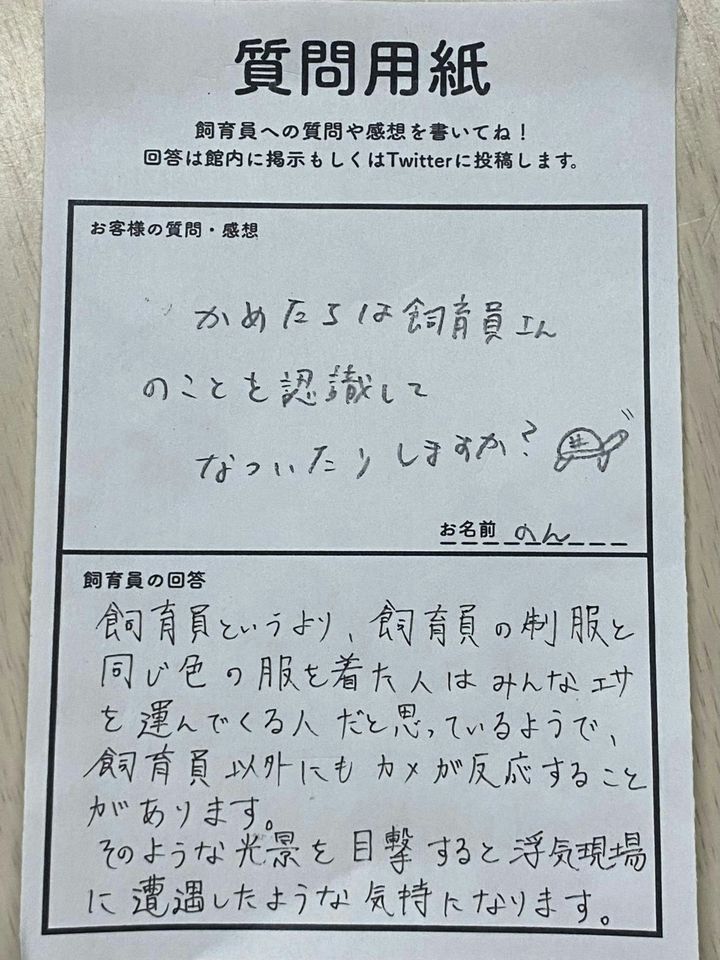 質問用紙
飼育員への質問や感想を書いてね！
回答は館内に掲示もしくはTwitterに投稿します。
お客様の質問・感想
かめたちは飼育員さん
のことを認識して
なついたりしますか？
お名前 のん
飼育員の回答
飼育員というより、飼育員の制服と
同じ色の服を着た人はみんなエサ
を運んでくる人だと思っているようで、
飼育員以外にもカメが反応すること
があります。
そのような光景を目撃すると浮気現場
に遭遇したような気持になります。